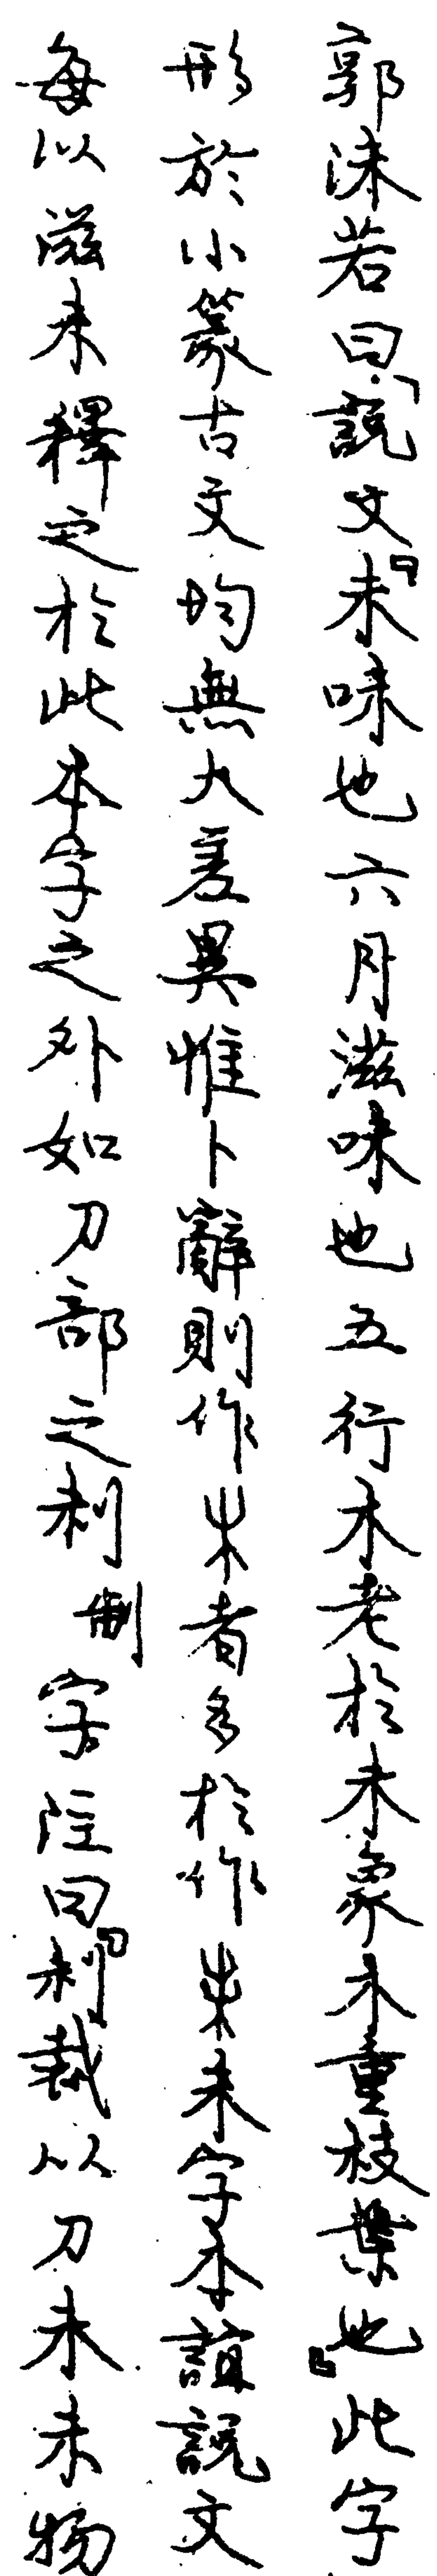 郭沫若曰：「說文『未味也六月滋味也五行木老於未象木重枝葉也』此字
形於小篆古文均無大差異惟卜辭則作者多於作未字本誼說文
每以滋未釋之於此本字之外如刀部之𠛐制字註曰『𠛐裁以刀未未物